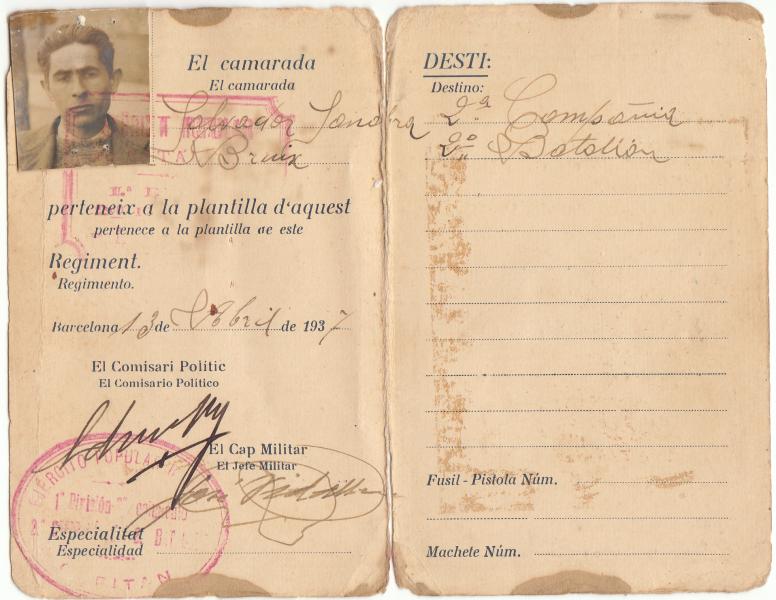 El camarada
El camarada
Salvador Sanahra
Bruix
perteneix a la plantilla d'aquest
pertenece a la plantilla de este
Regiment.
Regimiento.
Barcelona 13 de Abril de 1937
El Comisari Polític
El Comisario Político
El Cap Militar
El Jefe Militar
EJÉRCITO POPULAR
1ª División
CAPITÁN
Especialitat
Especialidad
DESTI:
Destino:
2ª Compañia
2º Batallón
Fusil - Pistola Núm.
Machete Núm.